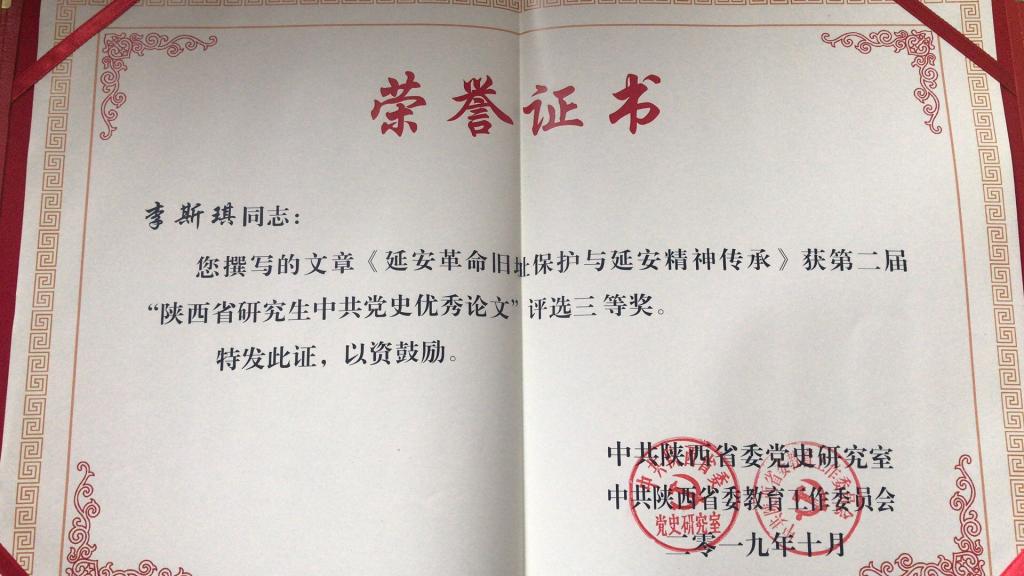 荣誉证书
李斯琪同志：
您撰写的文章《延安革命旧址保护与延安精神传承》获第二届
“陕西省研究生中共党史优秀论文”评选三等奖。
特发此证，以资鼓励。
中共陕西省委党史研究室
中共陕西省委教育工作委员会
二零一九年十月
中共陕西省委
党史研究室